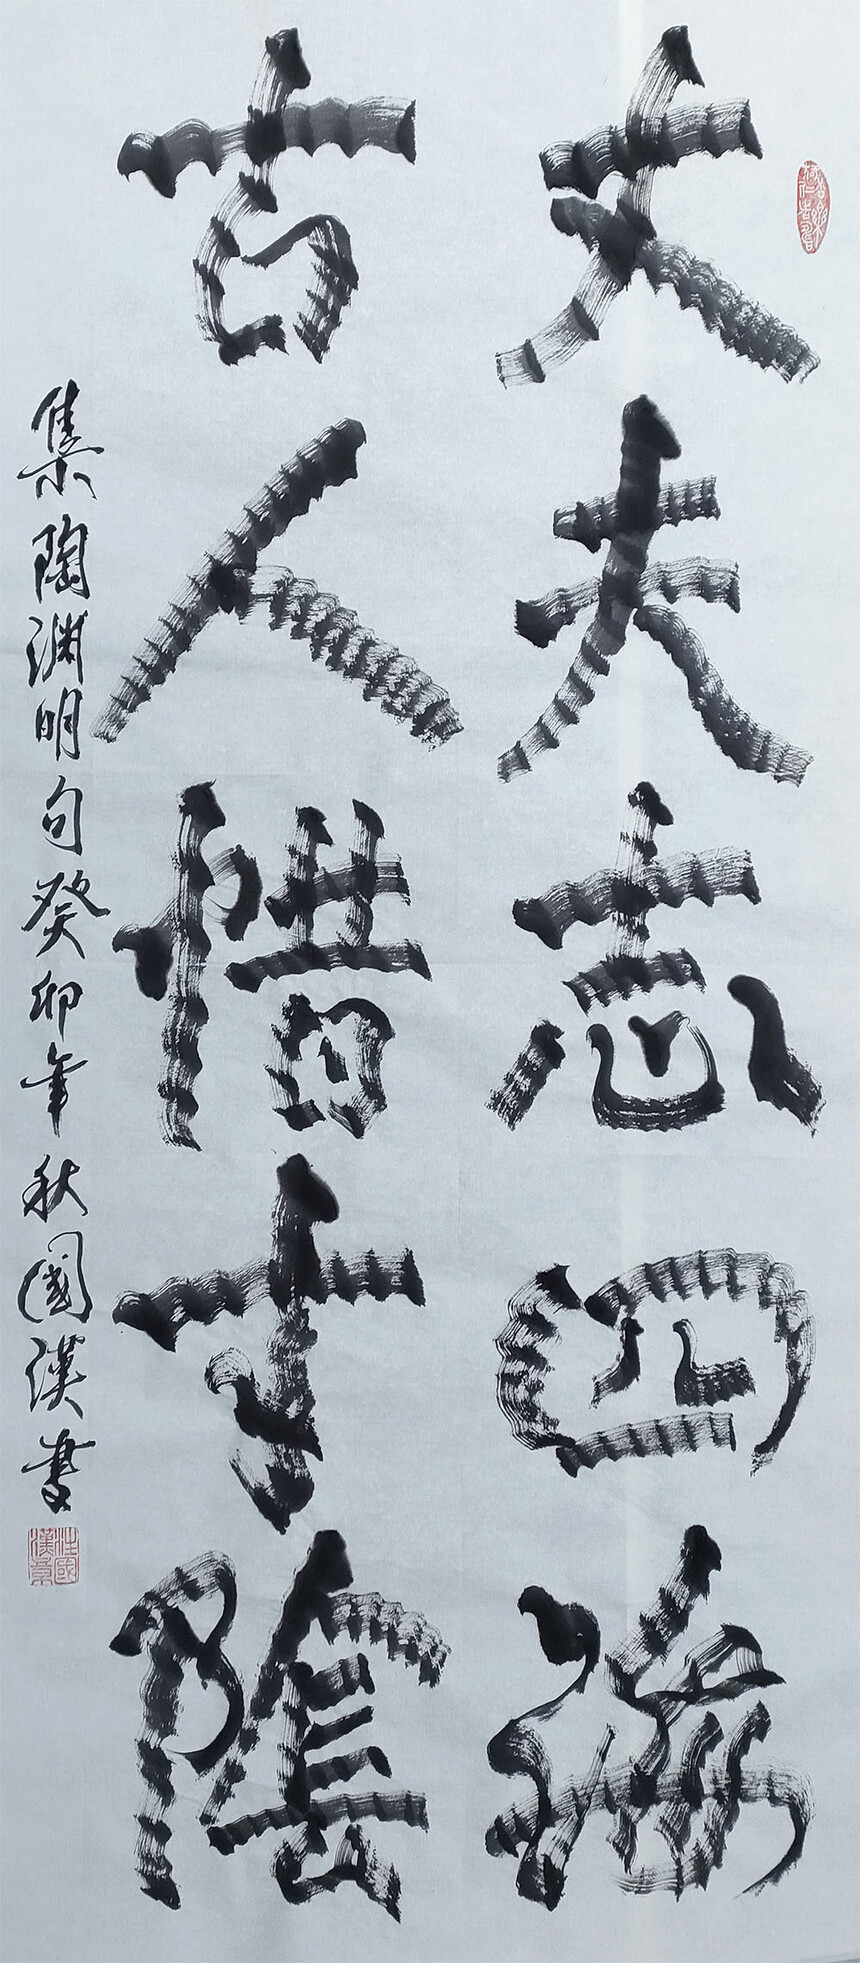 丈夫志四海
古人惜寸陰
集陶渊明句癸卯年秋國漢書